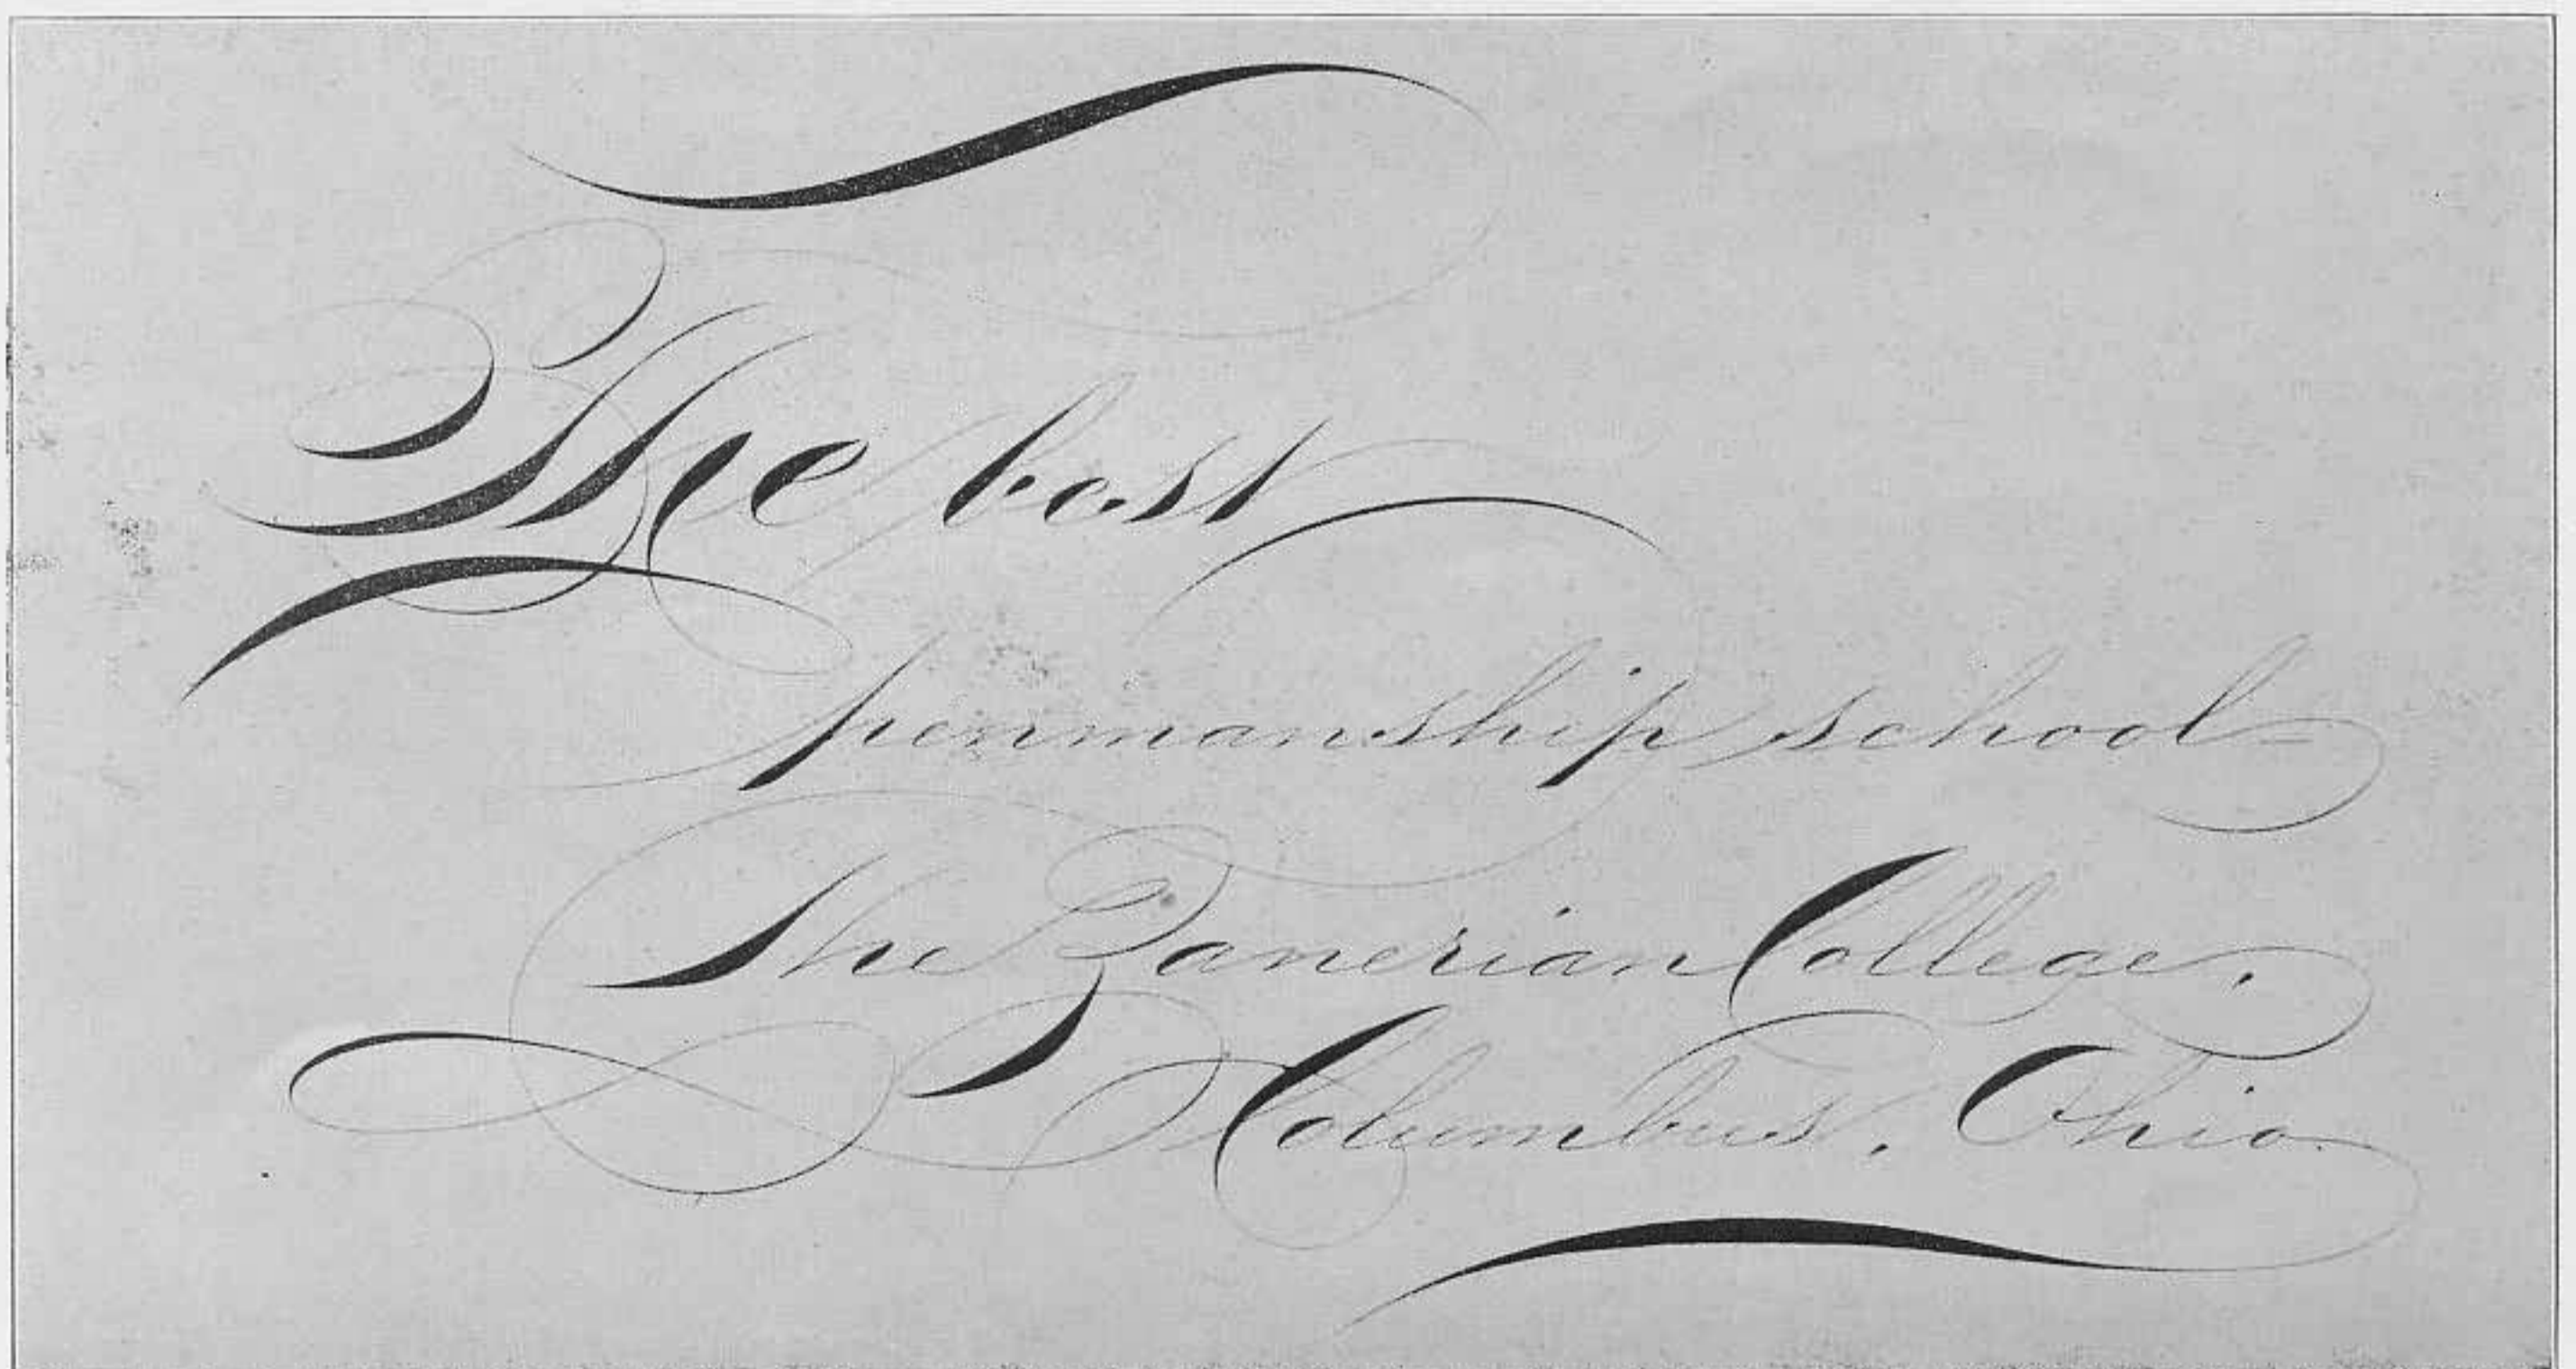 The best
penmanship school=
The Zanerian College,
Columbus, Ohio.